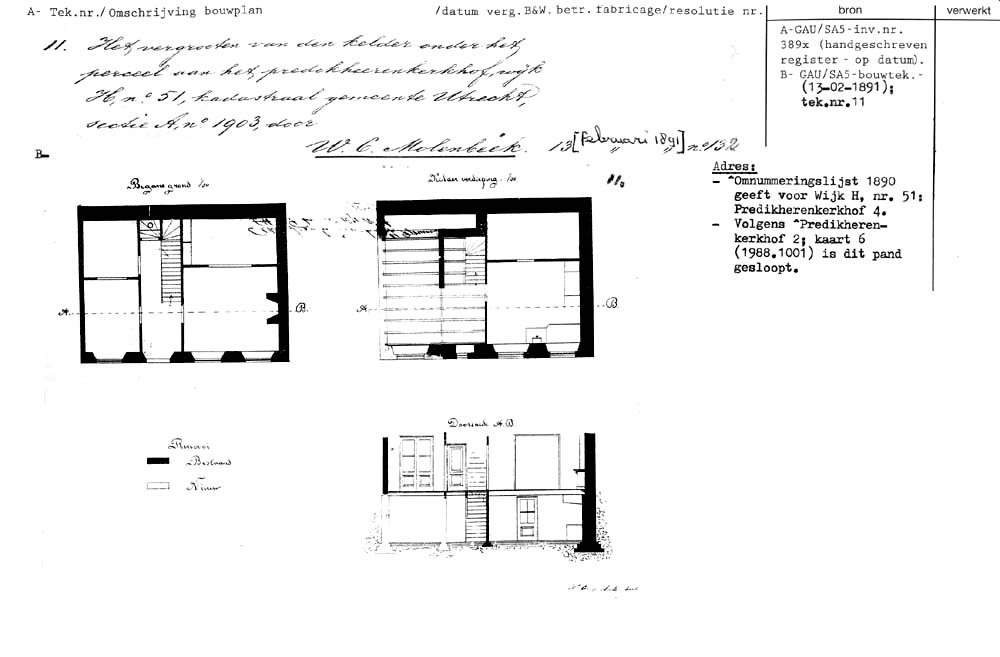 A- Tek.nr./Omschrijving bouwplan /datum verg.B&W.betr.fabricage/resolutie nr. bron verwerkt
11. Het vergrooten van den kelder onder het
perceel aan het predikheerenkerkhof, wijk
H, nº 51, kadastraal gemeente Utrecht,
sectie A, nº 1903, door
W. C. Molenbeek. 13 [februari 1891] nº 132
A-GAU/SA5-inv.nr.
389x (handgeschreven
register - op datum).
B- GAU/SA5-bouwtek.-
(13-02-1891);
tek.nr.11
B-
Adres:
- ^Omnummeringslijst 1890
geeft voor Wijk H, nr. 51:
Predikherenkerkhof 4.
- Volgens ^Predikheren-
kerkhof 2; kaart 6
(1988.1001) is dit pand
gesloopt.
Begane grond 1/50
verdieping 1/50
11.
A. B.
A. B.
Doorsnede A.B.
Renvooi
Bestaand
Nieuw